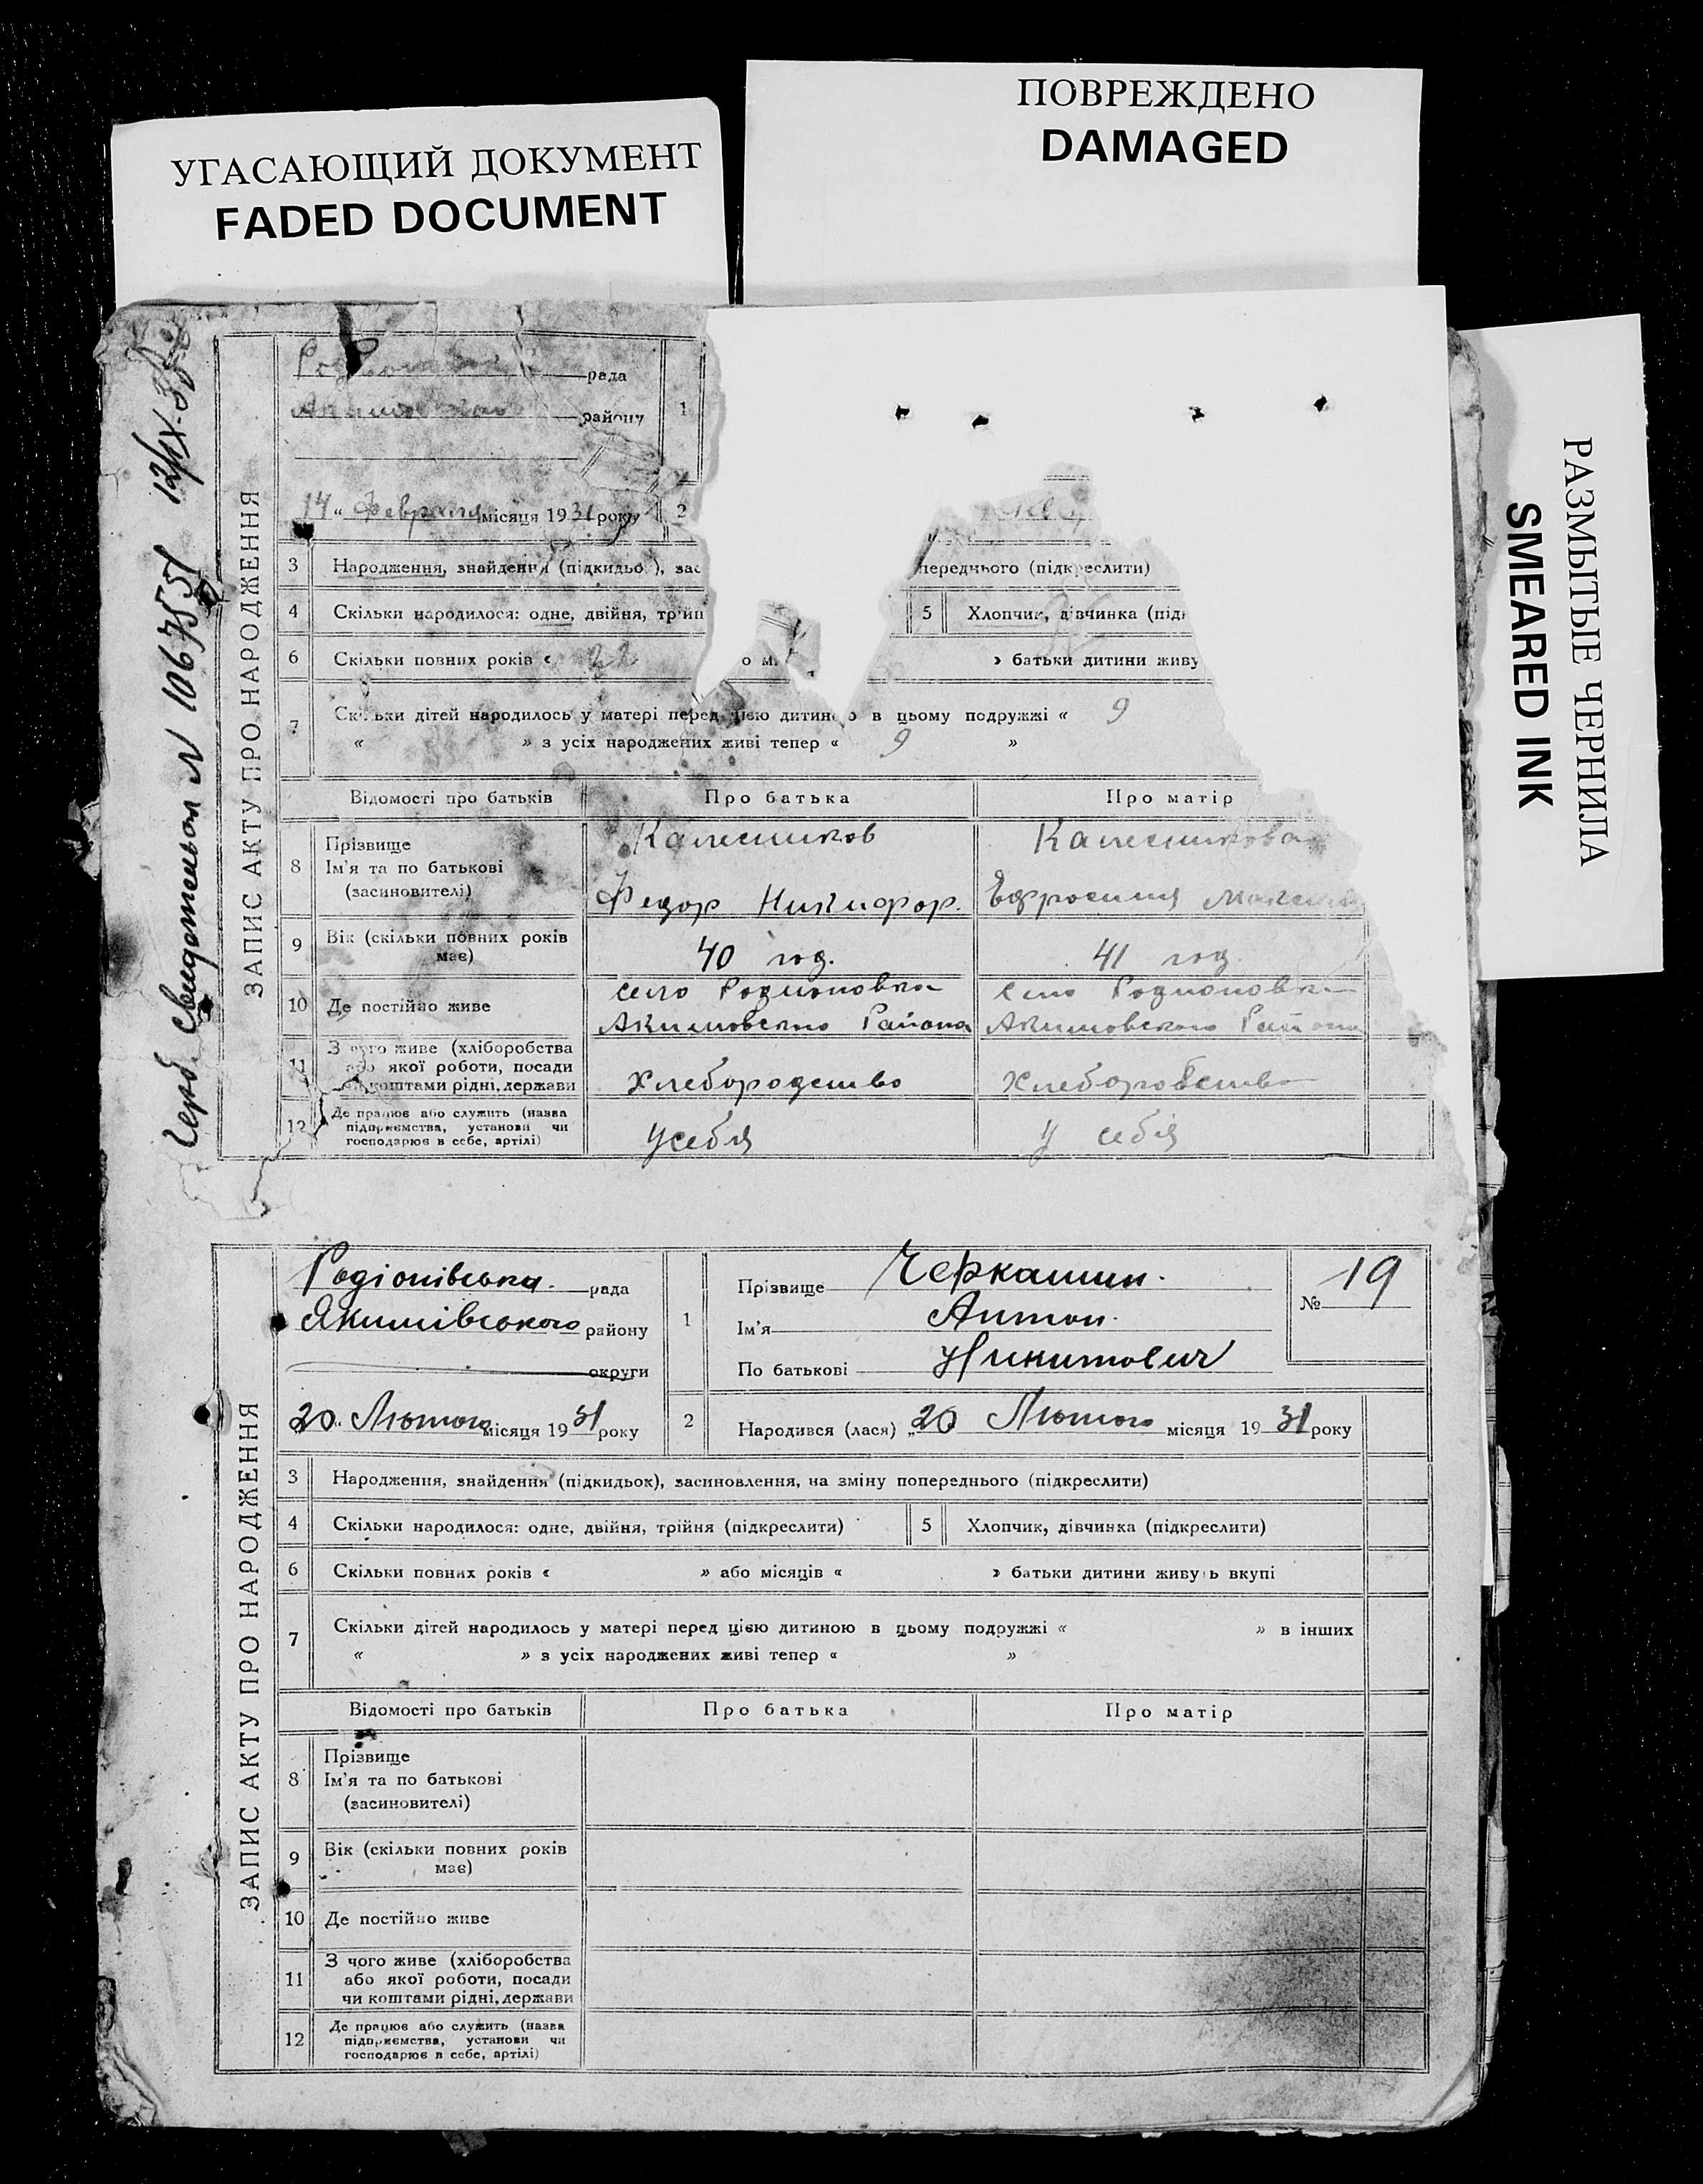 УГАСАЮЩИЙ ДОКУМЕНТ
FADED DOCUMENT
ПОВРЕЖДЕНО
DAMAGED
РАЗМЫТЫЕ ЧЕРНИЛА
SMEARED INK
Свидетельст N 1067551
ЗАПИС АКТУ ПРО НАРОДЖЕННЯ
рада
району
1
14 " Февраля місяця 1931 року
2
3 Народження, знайдення (підкидьо ), зас переднього (підкреслити)
4 Скільки народилося: одне, двійня, трійн
5 Хлопчик, дівчинка (підк
6 Скільки повних років « 22 о мі » батьки дитини живу
7 Скільки дітей народилось у матері перед цією дитиною в цьому подружжі « 9
« » з усіх народжених живі тепер « 9 »
Відомості про батьків Про батька Про матір
8 Прізвище Калесников Калесникова
Ім'я та по батькові
(засиновителі) Федор Никифор. Ефросиния
9 Вік (скільки повних років має) 40 год. 41 год.
10 Де постійно живе село Родионовка село Родионовка
Акимовского Района Акимовского Района
11 З чого живе (хліборобства
або якої роботи, посади
чи коштами рідні, держави Хлебородство Хлеборобство
12 Де працює або служить (назва
підприємства, установи чи
господарює в себе, артілі) у себя у себя
ЗАПИС АКТУ ПРО НАРОДЖЕННЯ
Родіонівська рада
Якимівського району
округи
1 Прізвище Черкашин.
Ім'я Антон.
По батькові Никитович
№ 19
20 " Лютого місяця 1931 року
2 Народився (лася) „20 Лютого місяця 1931 року
3 Народження, знайдення (підкидьок), засиновлення, на зміну попереднього (підкреслити)
4 Скільки народилося: одне, двійня, трійня (підкреслити)
5 Хлопчик, дівчинка (підкреслити)
6 Скільки повних років « » або місяців « » батьки дитини живуть вкупі
7 Скільки дітей народилось у матері перед цією дитиною в цьому подружжі « » в інших
« » з усіх народжених живі тепер « »
Відомості про батьків Про батька Про матір
8 Прізвище
Ім'я та по батькові
(засиновителі)
9 Вік (скільки повних років
має)
10 Де постійно живе
11 З чого живе (хліборобства
або якої роботи, посади
чи коштами рідні, держави
12 Де працює або служить (назва
підприємства, установи чи
господарює в себе, артілі)